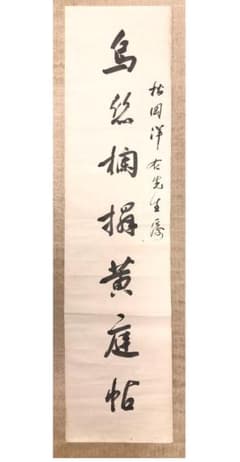 松岡洋右先生屬
烏絲欄搨黃庭帖